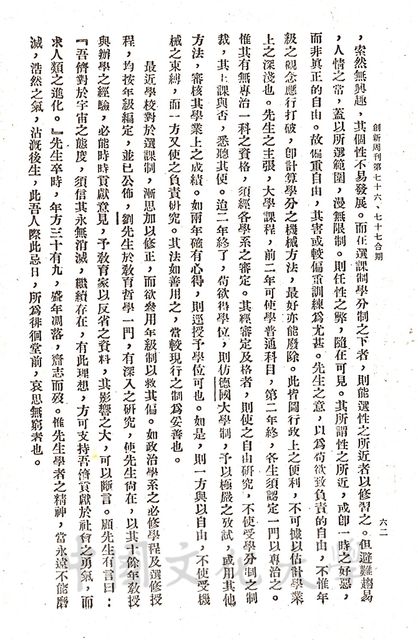 創新周刊第七十六、七十七合期
六二
，索然無興趣，其個性不易發展。而在選課制學分制之下者，則能選性之所近者以修習之。但避難趨易
，人情之常，蓋以所選範圍，漫無限制。則任性之弊，隨在可見。其所謂性之所近，或卽一時之好惡，
而非眞正的自由。故偏重自由，其害或較偏重訓練爲尤甚。先生之意，以爲苟欲致負責的自由，不惟年
級之觀念應行打破，卽計算學分之機械方法，最好亦能廢除。此皆圖行政上之便利，不可據以估計學業
上之深淺也。先生之主張，大學課程，前二年可使學普通科目，第二年終，各生須認定一門以專治之。
惟其有無專治一科之資格，須經各學系之審定。其經審定及格者，則使之自由研究，不使受學分制之制
裁，其上課與否，悉聽其便。迨二年終了，苟欲得學位，則仿德國大學制，予以極嚴之攷試，或用其他
方法，審核其學業上之成績。如兩年確有心得，則逕授予學位可也。如是，則一方與以自由，不使受機
械之束縛，而一方又使之負責研究。其法如善用之，當較現行之制爲妥善也。
最近學校對於選課制，漸思加以修正，而欲參用年級制以救其偏。如政治學系之必修學程及選修授
程，均按年級編定，並已公佈，劉先生於敎育哲學一門，有深入之研究，使先生尙在，以其十餘年敎授
與辦學之經驗，必能時時貢獻意見，予敎育家以反省之資料，其影響之大，可以斷言。顧先生有言曰：
『吾儕對於宇宙之態度，須信其永無消滅，繼續存在，有此理想，方可支持吾儕貢獻於社會之勇氣，而
求人類之進化。』先生卒時，年方三十有九，盛年凋落，齎志而歿。惟先生學者之精神，當永遠不能磨
滅，浩然之氣，沾溉後生，此吾人際此忌日，所爲徘徊堂前，哀思無窮者也。
中國文化大學